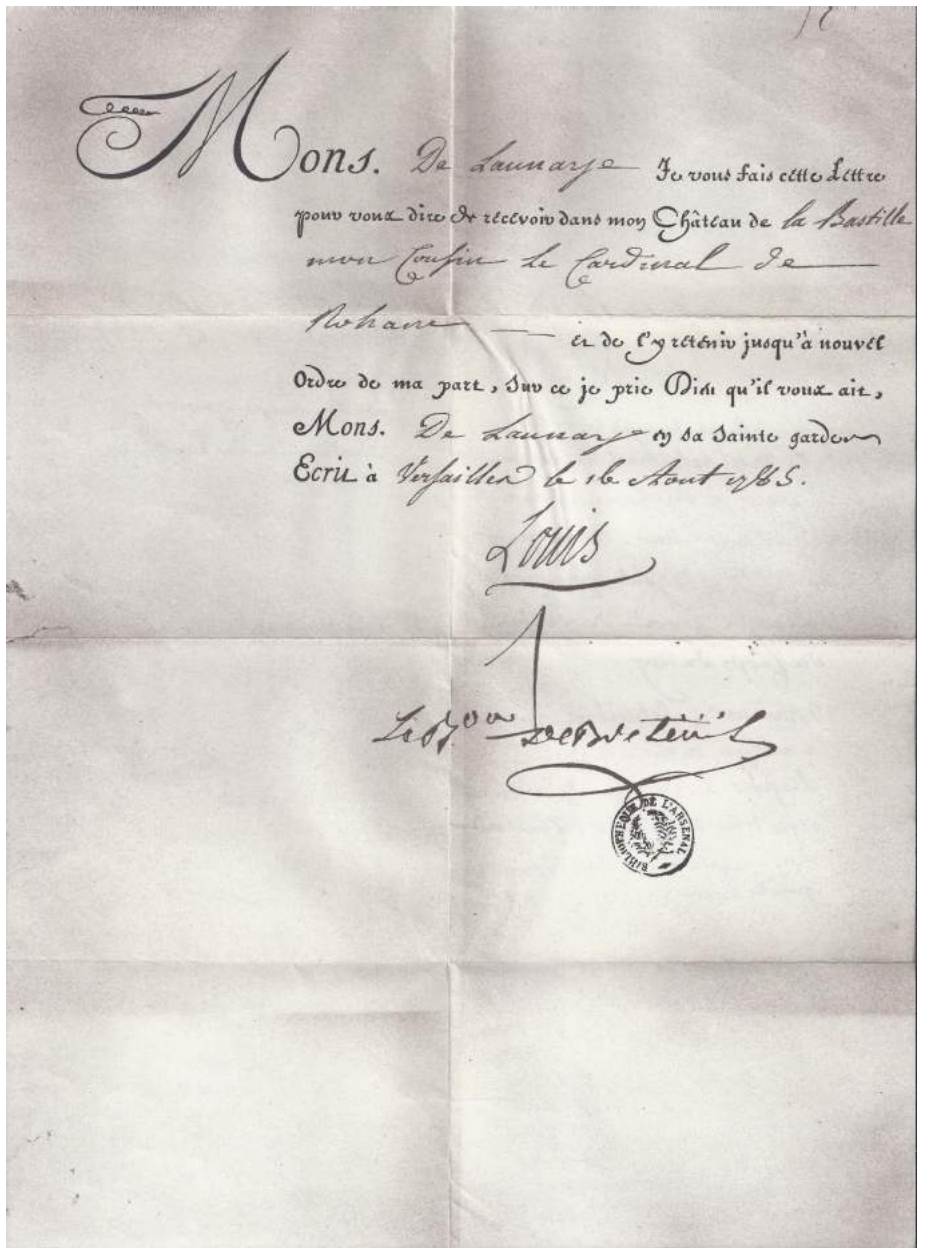 Mons. De Launay Je vous fais cette Lettre
pour vous dire de recevoir dans mon Château de la Bastille
mon Cousin le Cardinal de
Rohan et de l'y retenir jusqu'à nouvel
Ordre de ma part, Sur ce je prie Dieu qu'il vous ait,
Mons. De Launay en sa Sainte garde
Ecrit à Versailles le 16 Aout 1785.
Louis
Le Bon De Breteuil
BIBLIOTHEQUE DE L'ARSENAL